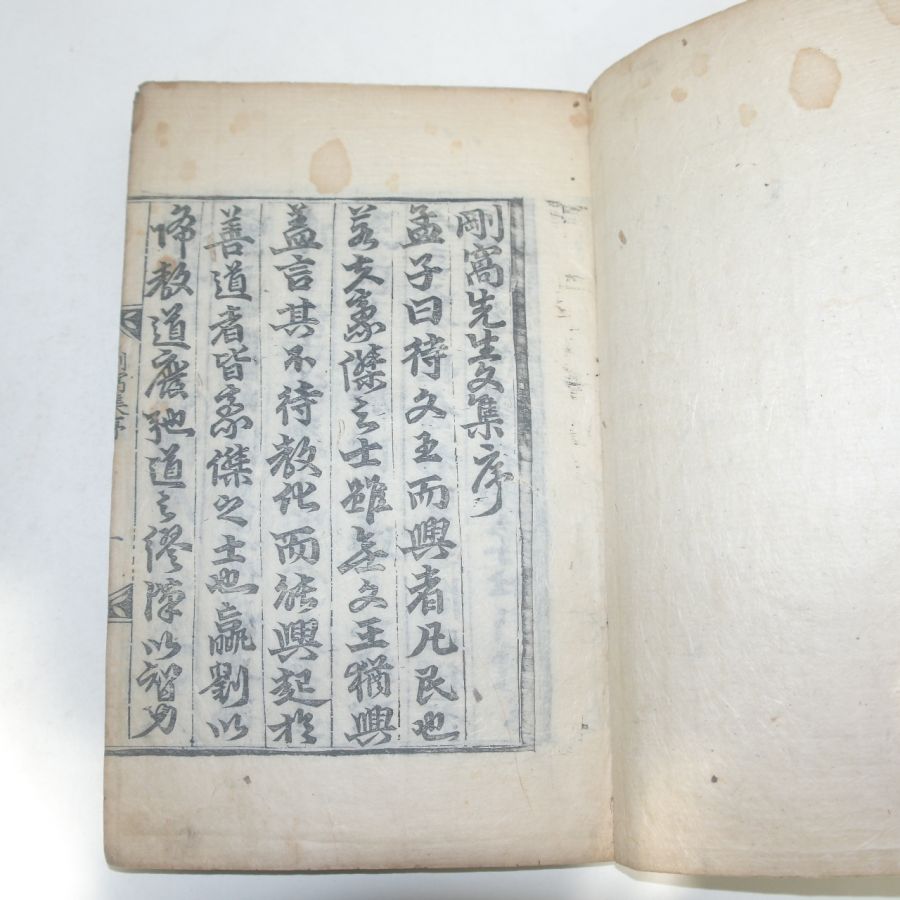 剛窩先生文集序
孟子曰待文王而興者凡民也
若夫豪傑之士雖無文王猶興
盖言其不待教化而能興起於
善道者皆豪傑之士也嬴劉以
啼教道廢弛道之繆陳以智力
剛窩集序
一